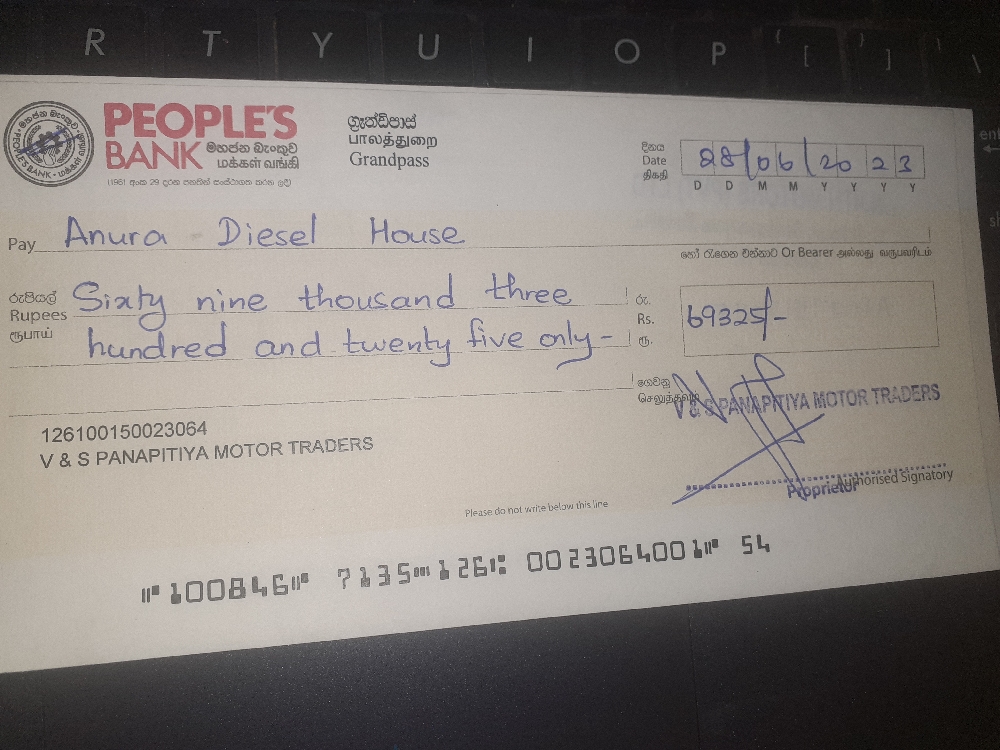 R T Y U I O P [ ] \
PEOPLE'S
BANK
මහජන බැංකුව
மக்கள் வங்கி
(1961 අංක 29 දරන පනතින් සංස්ථාගත කරන ලදී)
ග්‍රෑන්ඩ්පාස්
பாலத்துறை
Grandpass
දිනය
Date
திகதி
28/06/2023
D D M M Y Y Y Y
Pay Anura Diesel House
හෝ රැගෙන එන්නාට Or Bearer அல்லது வருபவரிடம்
රුපියල්
Rupees
ரூபாய்
Sixty nine thousand three
hundred and twenty five only-
රු.
Rs.
ரூ.
69325/-
ගෙවනු
செலுத்தவும்
V & S PANAPITIYA MOTOR TRADERS
126100150023064
V & S PANAPITIYA MOTOR TRADERS
Proprietor
Authorised Signatory
Please do not write below this line
⑈100846⑈ 7135⑉126⑆ 0023064001⑈ 54